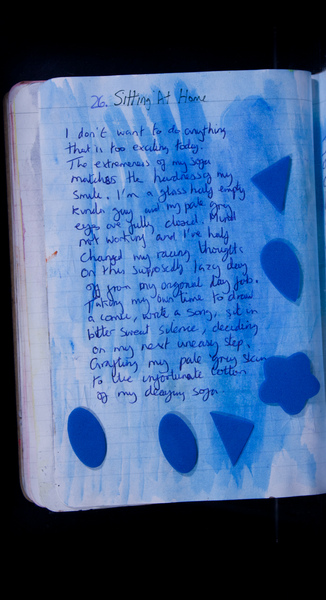 26. Sitting At Home
I don't want to do anything
that is too exciting today.
The extremeness of my sofa
matches the hardness of my
smile. I'm a glass half empty
kinda guy and my pale grey
eyes are fully closed.
not working and I've half
changed my racing thoughts
on this supposedly lazy day
off from my original day job.
Taking my own time to draw
a comic, write a song, sit in
bitter sweet silence, deciding
on my next uneasy step.
Grafting my pale grey skin
to the unfortunate cotton
of my decaying sofa.